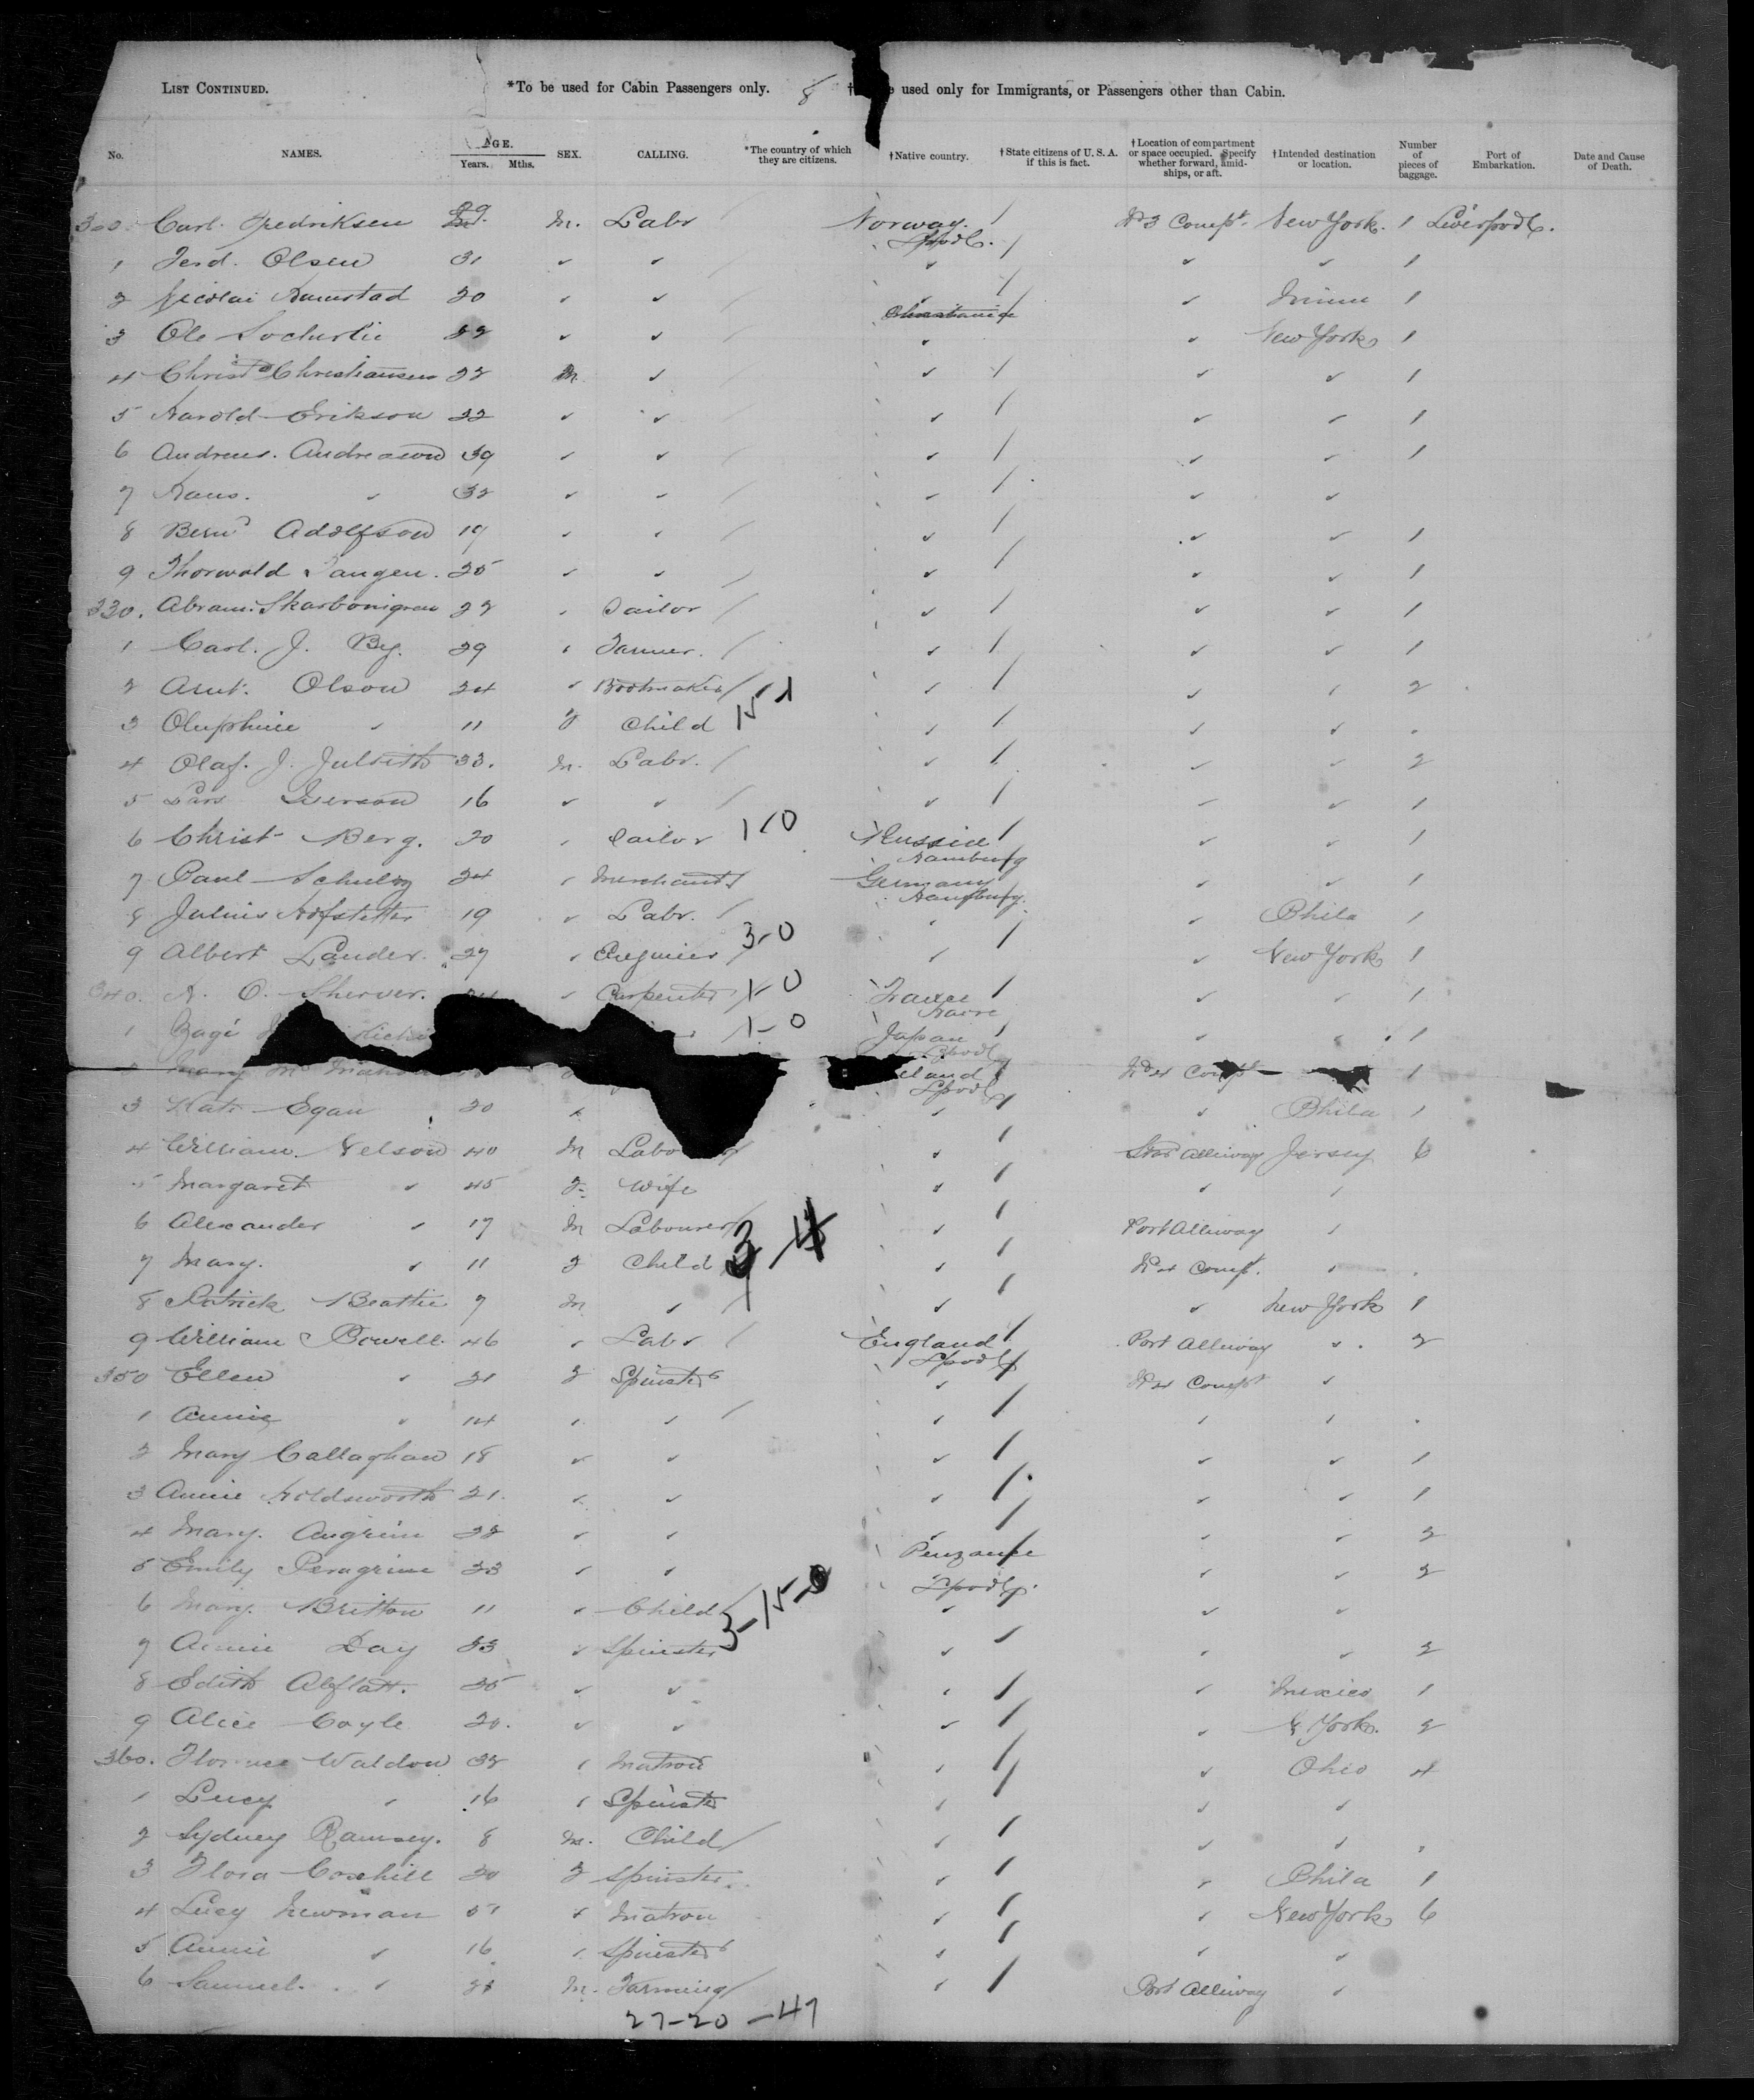 LIST CONTINUED. *To be used for Cabin Passengers only. 8 † used only for Immigrants, or Passengers other than Cabin.
No. NAMES. AGE. Years. Mths. SEX. CALLING. *The country of which they are citizens. †Native country. †State citizens of U. S. A. if this is fact. †Location of compartment or space occupied. Specify whether forward, amid-ships, or aft. †Intended destination or location. Number of pieces of baggage. Port of Embarkation. Date and Cause of Death.
Carl. Fredriksen 29 M. Labr / Norway. / No 3 Compt. New York. 1 Liverpool.
Lpool.
1 Ferd. Olsen 31 ✓ ✓ / ✓ / ✓ ✓ 1
2 Nicolai 20 ✓ ✓ / ✓ / ✓ Minn 1
Christiania
3 Ole 22 ✓ ✓ / ✓ ✓ New York 1
4 Christ Christiansen 22 M. ✓ / ✓ / ✓ ✓ 1
5 Harold Erikson 22 ✓ ✓ / ✓ / ✓ ✓ 1
6 Andreas. Andreason 39 ✓ ✓ / ✓ / ✓ ✓ 1
7 Hans. ✓ 32 ✓ ✓ / ✓ / ✓ ✓
8 Bern Adolfson 19 ✓ ✓ / ✓ / ✓ ✓ 1
9 Thorwald Tangen. 25 ✓ ✓ / ✓ / ✓ ✓ 1
330. Abram. 22 ✓ Sailor / ✓ / ✓ ✓ 1
1 Carl. J. By. 29 ✓ Tanner. / ✓ / ✓ ✓ 1
2 Arnt. Olson 34 ✓ Bootmaker / 15-1 ✓ / ✓ ✓ 2
3 ✓ 11 F Child ✓ / ✓ ✓
4 Olaf. J. 33. M. Labr. / ✓ / ✓ ✓ 2
5 Lars Iverson 16 ✓ ✓ / ✓ / ✓ ✓ 1
6 Christ Berg. 20 ✓ Sailor 1-0 Russia / ✓ ✓ 1
Hamburg
7 Paul Schulz 34 ✓ Merchant / Germany ✓ ✓ 1
Hamburg.
8 Julius Hofstetter 19 ✓ Labr. / ✓ ✓ Phila 1
9 Albert Lander. 27 ✓ Engineer / 3-0 ✓ / ✓ New York 1
340. A. O. Sherver. ✓ Carpenter 1-0 France / ✓ ✓ 1
Havre
1 1-0 Japan / ✓ ✓ 1
Lpool
Mary Mc eland No 4 Compt 1
Lpool
3 Kate Egan 20 ✓ ✓ / ✓ Phila 1
4 William. Nelson 40 M Labo / ✓ / Star Alleway Jersey 6
5 Margaret ✓ 45 F. Wife ✓ / ✓ ✓
6 Alexander ✓ 17 M Labourer / ✓ / Port Alleway ✓
7 Mary. ✓ 11 F Child 3-4 ✓ / No 4 Compt. ✓
8 Patrick Beattie 7 M ✓ / ✓ / ✓ New York 1
9 William Powell. 46 ✓ Labr / England / Port Alleway ✓ 2
Lpool
350 Ellen ✓ 21 F Spinster ✓ No 4 Compt ✓
1 Annie ✓ 14 ✓ ✓ / ✓ / ✓ ✓
2 Mary Callaghan 18 ✓ ✓ ✓ / ✓ ✓ 1
3 Annie Holdsworth 21. ✓ ✓ ✓ / ✓ ✓ 1
4 Mary. Angrim 22 ✓ ✓ ✓ / ✓ ✓ 2
Penzance
5 Emily Peregrine 23 ✓ ✓ ✓ ✓ 2
Lpool.
6 Mary. Britton 11 ✓ Child 3-15-0 ✓ ✓ ✓
7 Annie Day 23 ✓ Spinster ✓ / ✓ ✓ 2
8 Edith Alflatt. 25 ✓ ✓ ✓ / ✓ Mexico 1
9 Alice Coyle 20. ✓ ✓ ✓ / ✓ N York. 2
360. Florence Waldon 32 ✓ Matron ✓ / ✓ Ohio 4
1 Lucy ✓ 16 ✓ Spinster ✓ / ✓ ✓
2 Sydney Ramsey. 8 M. Child / ✓ / ✓ ✓
3 Flora Coxhill 20 F Spinster ✓ / ✓ Phila 1
4 Lucy Newman 51 ✓ Matron ✓ / ✓ New York 6
5 Annie ✓ 16 ✓ Spinster ✓ / ✓ ✓
6 Samuel. ✓ 21 M. Farming / ✓ / Port Alleway ✓
27-20-47